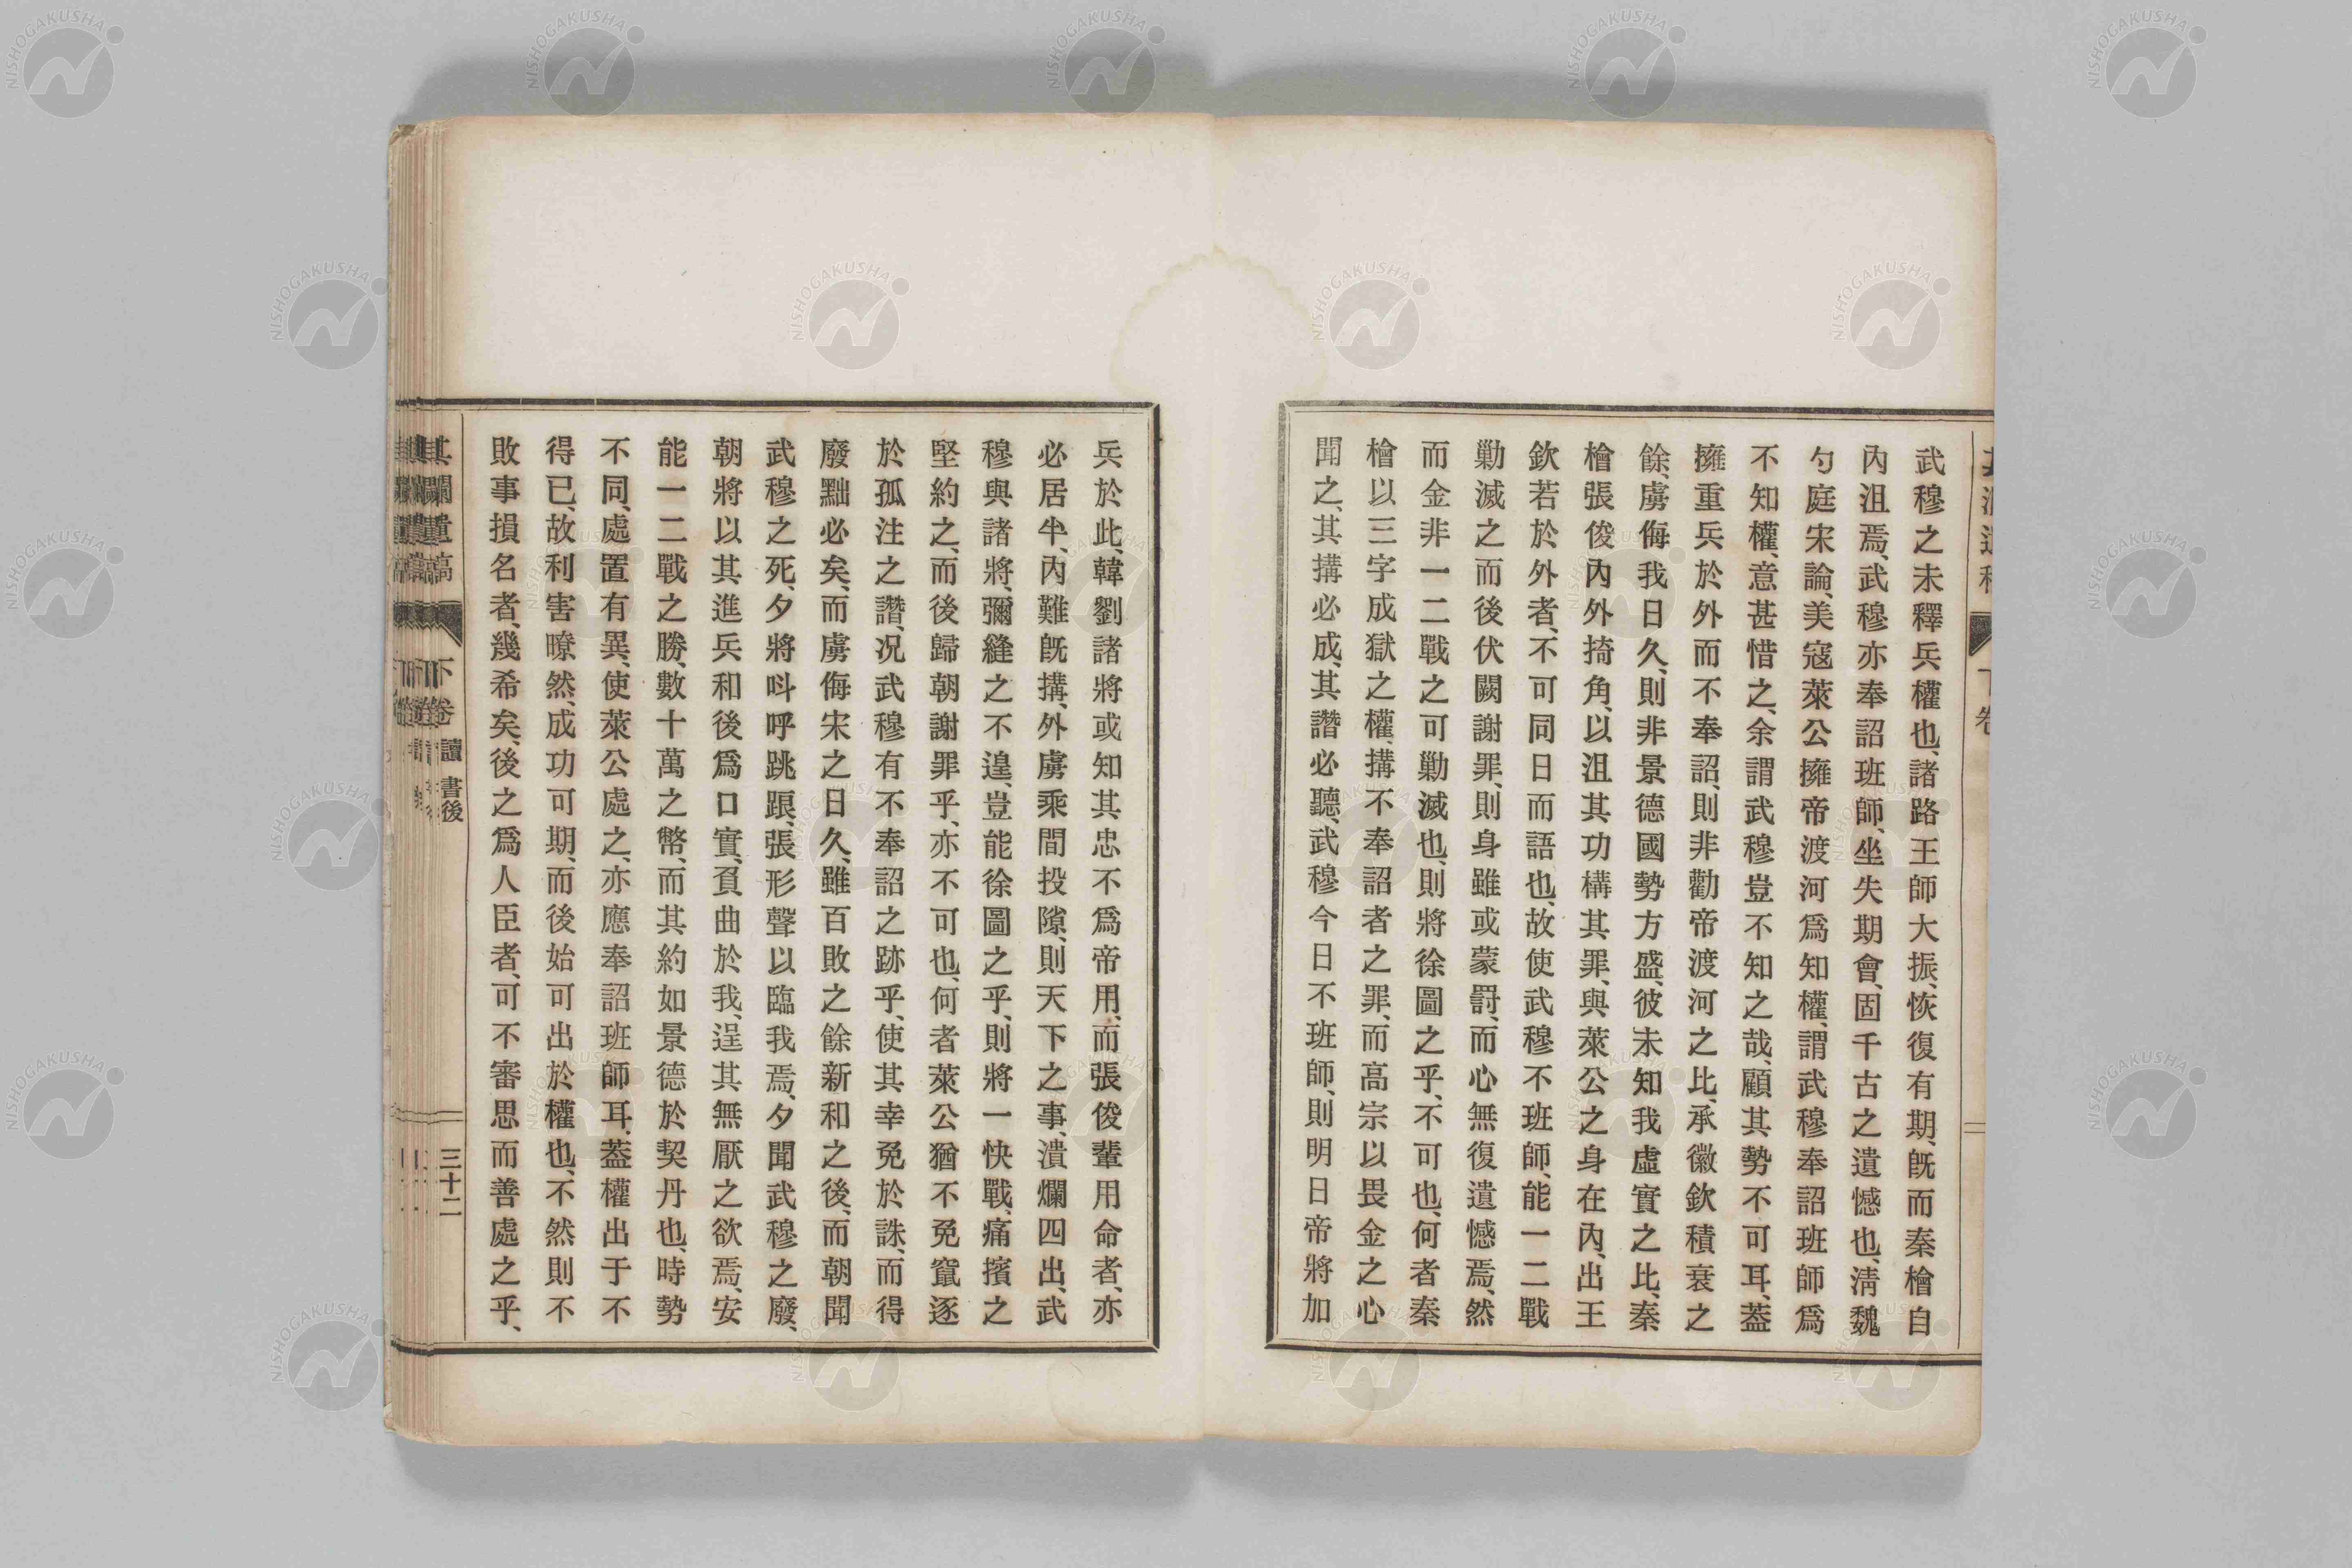 武穆之未釋兵權也、諸路王師大振、恢復有期、既而秦檜自
內沮焉、武穆亦奉詔班師、坐失期會、固千古之遺憾也、淸魏
勺庭宋論、美寇萊公擁帝渡河爲知權、謂武穆奉詔班師爲
不知權、意甚惜之、余謂武穆豈不知之哉、顧其勢不可耳、蓋
擁重兵於外而不奉詔、則非勸帝渡河之比、承徽欽積衰之
餘、虜侮我日久、則非景德國勢方盛、彼未知我虛實之比、秦
檜張俊內外掎角、以沮其功構其罪、與萊公之身在內、出王
欽若於外者、不可同日而語也、故使武穆不班師、能一二戰
勦滅之而後伏闕謝罪、則身雖或蒙罸、而心無復遺憾焉、然
而金非一二戰之可勦滅也、則將徐圖之乎、不可也、何者秦
檜以三字成獄之權、搆不奉詔者之罪、而高宗以畏金之心
聞之、其搆必成、其譖必聽、武穆今日不班師、則明日帝將加
兵於此、韓劉諸將或知其忠不爲帝用、而張俊輩用命者、亦
必居半、內難既搆、外虜乘間投隙、則天下之事、潰爛四出、武
穆與諸將、彌縫之不遑、豈能徐圖之乎、則將一快戰、痛擯之
堅約之、而後歸朝謝罪乎、亦不可也、何者萊公猶不免竄逐
於孤注之譖、况武穆有不奉詔之跡乎、使其幸免於誅、而得
廢黜必矣、而虜侮宋之日久、雖百敗之餘新和之後、而朝聞
武穆之死、夕將呌呼跳踉、張形聲以臨我焉、夕聞武穆之廢、
朝將以其進兵和後爲口實、負曲於我、逞其無厭之欲焉、安
能一二戰之勝、數十萬之幣、而其約如景德於契丹也、時勢
不同、處置有異、使萊公處之、亦應奉詔班師耳、蓋權出于不
得已、故利害暸然、成功可期、而後始可出於權也、不然則不
敗事損名者、幾希矣、後之爲人臣者、可不審思而善處之乎、
下卷 讀 書後
三十二
NISHOGAKUSHA